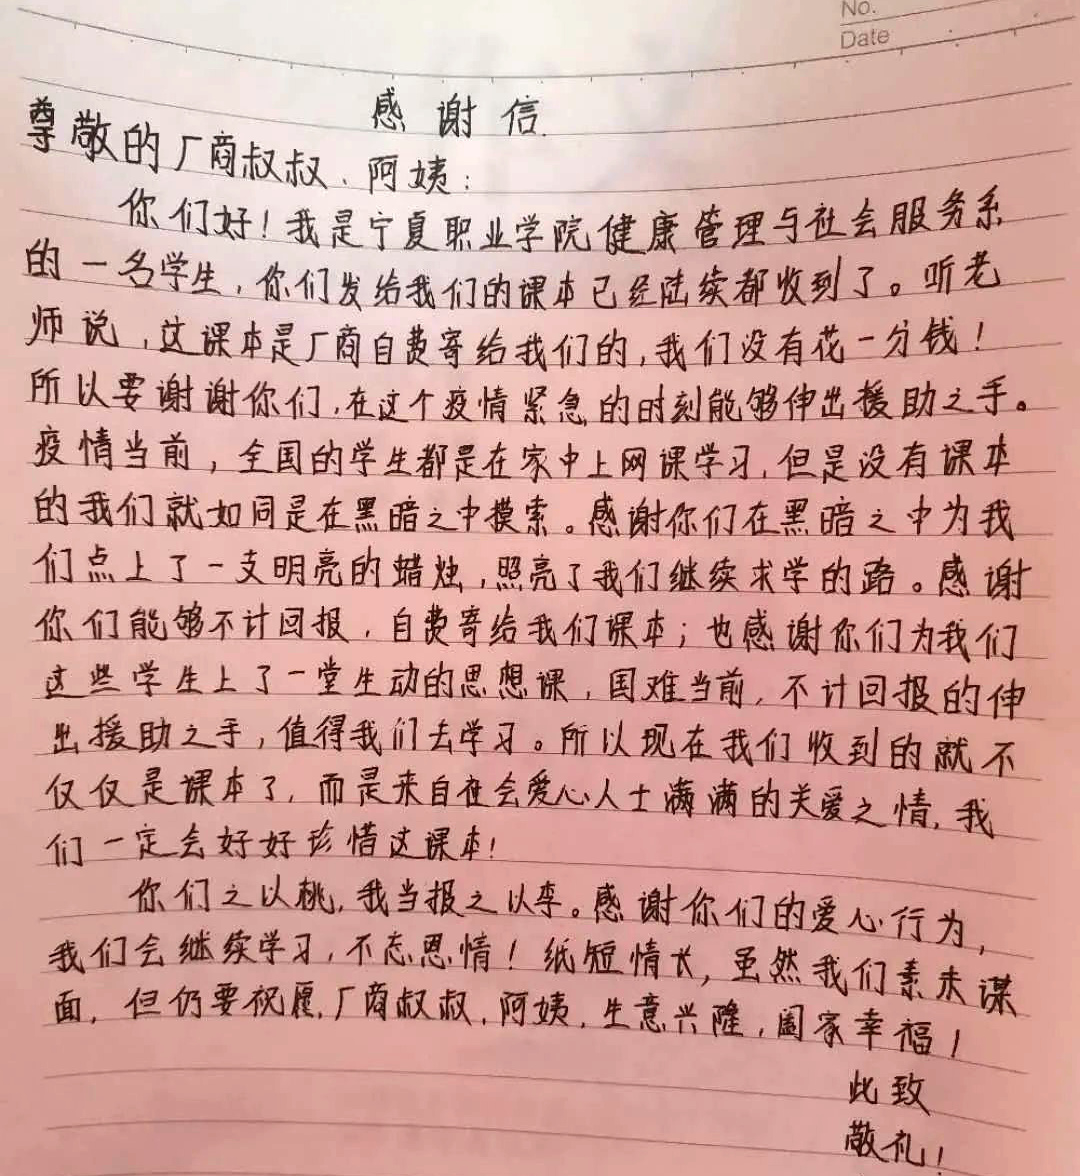 No.
Date
感谢信
尊敬的厂商叔叔、阿姨:
你们好!我是宁夏职业学院健康管理与社会服务系
的一名学生,你们发给我们的课本已经陆续都收到了。听老
师说,这课本是厂商自费寄给我们的,我们没有花一分钱!
所以要谢谢你们,在这个疫情紧急的时刻能够伸出援助之手。
疫情当前,全国的学生都是在家中上网课学习,但是没有课本
的我们就如同是在黑暗之中摸索。感谢你们在黑暗之中为我
们点上了一支明亮的蜡烛,照亮了我们继续求学的路。感谢
你们能够不计回报,自费寄给我们课本;也感谢你们为我们
这些学生上了一堂生动的思想课,国难当前,不计回报的伸
出援助之手,值得我们去学习。所以现在我们收到的就不
仅仅是课本了,而是来自社会爱心人士满满的关爱之情,我
们一定会好好珍惜这课本!
你们之以桃,我当报之以李。感谢你们的爱心行为,
我们会继续学习,不忘恩情!纸短情长,虽然我们素未谋
面,但仍要祝愿,厂商叔叔,阿姨,生意兴隆,阖家幸福!
此致
敬礼!